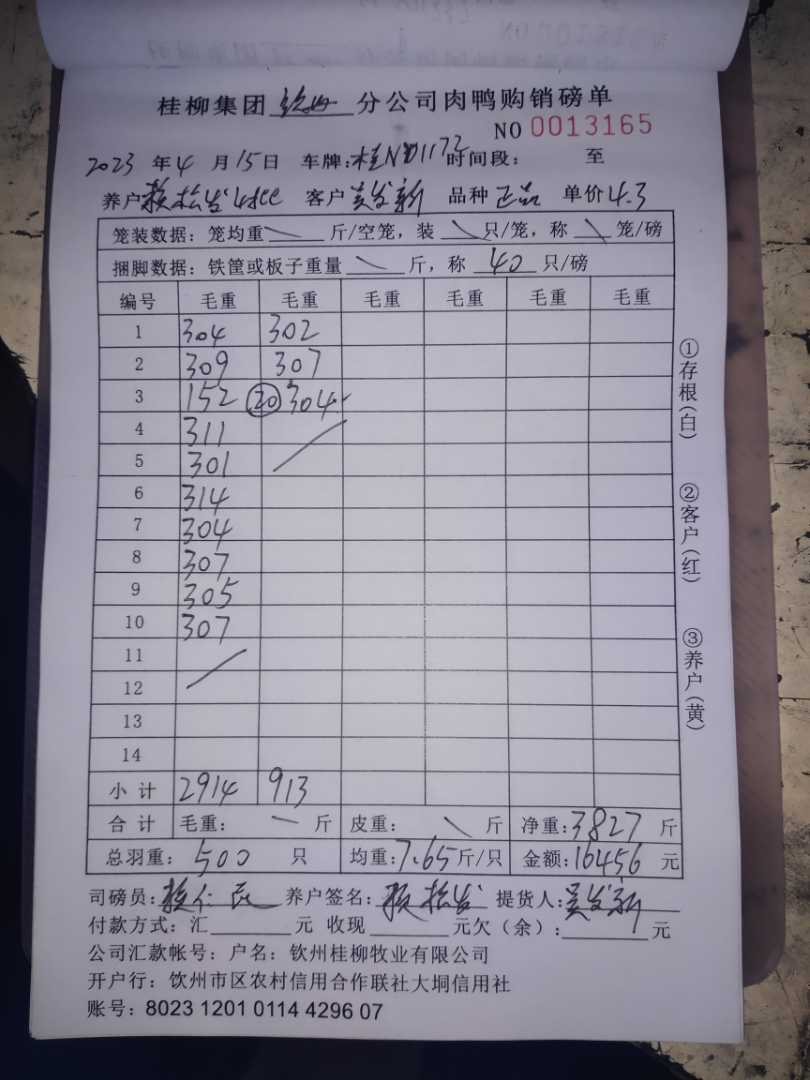 桂柳集团 钦州 分公司肉鸭购销磅单
NO 0013165
2023 年 4 月 15 日 车牌：桂ND1173 时间段： 至
养户 赖松发 客户 吴发新 品种 正品 单价 4.3
笼装数据：笼均重 \ 斤/空笼，装 \ 只/笼，称 \ 笼/磅
捆脚数据：铁筐或板子重量 \ 斤，称 40 只/磅
编号 毛重 毛重 毛重 毛重 毛重 毛重
1 304 302
2 309 307
3 152 ⑳ 304
4 311
5 301
6 314
7 304
8 307
9 305
10 307
11
12
13
14
小计 2914 913
合计 毛重： \ 斤 皮重： \ 斤 净重：3827 斤
总羽重： 500 只 均重：7.65 斤/只 金额：16456 元
司磅员：赖仁 养户签名：赖松发 提货人：吴发新
付款方式：汇 元 收现 元欠（余）： 元
公司汇款帐号：户名：钦州桂柳牧业有限公司
开户行：钦州市区农村信用合作联社大垌信用社
账号：8023 1201 0114 4296 07
①存根(白)
②客户(红)
③养户(黄)